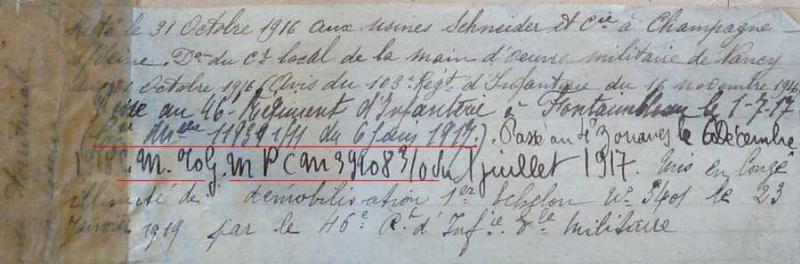 le 31 Octobre 1916 aux usines Schneider et Cie à Champagne
s/Seine. Don du Ct local de la main d'oeuvre militaire de Nancy
31 Octobre 1916 (Avis du 103e Regt d'Infanterie du 16 novembre 1916
au 46e Régiment d'Infanterie à Fontainebleau le 1-7-17
11939 1/11 du 6 1917.). Passé au 4e Zouaves le 6 décembre
1918. M. du 1 juillet 1917. Mis en Congé
illimité de démobilisation 1er Echelon No 3401 le 23
Janvier 1919 par le 46e Rt d'Infie. militaire